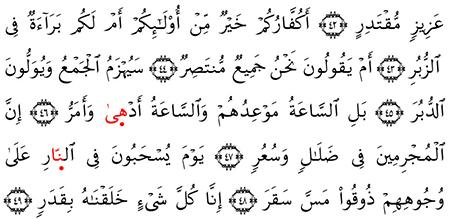 عَزِيزٖ مُّقۡتَدِرٍ ﴿٤٢﴾ أَكُفَّارُكُمۡ خَيۡرٞ مِّنۡ أُوْلَٰٓئِكُمۡ أَمۡ لَكُم بَرَآءَةٞ فِي
ٱلزُّبُرِ ﴿٤٣﴾ أَمۡ يَقُولُونَ نَحۡنُ جَمِيعٞ مُّنتَصِرٞ ﴿٤٤﴾ سَيُهۡزَمُ ٱلۡجَمۡعُ وَيُوَلُّونَ
ٱلدُّبُرَ ﴿٤٥﴾ بَلِ ٱلسَّاعَةُ مَوۡعِدُهُمۡ وَٱلسَّاعَةُ أَدۡهَىٰ وَأَمَرُّ ﴿٤٦﴾ إِنَّ
ٱلۡمُجۡرِمِينَ فِي ضَلَٰلٖ وَسُعُرٖ ﴿٤٧﴾ يَوۡمَ يُسۡحَبُونَ فِي ٱلنَّارِ عَلَىٰ
وُجُوهِهِمۡ ذُوقُواْ مَسَّ سَقَرَ ﴿٤٨﴾ إِنَّا كُلَّ شَيۡءٍ خَلَقۡنَٰهُ بِقَدَرٖ ﴿٤٩﴾